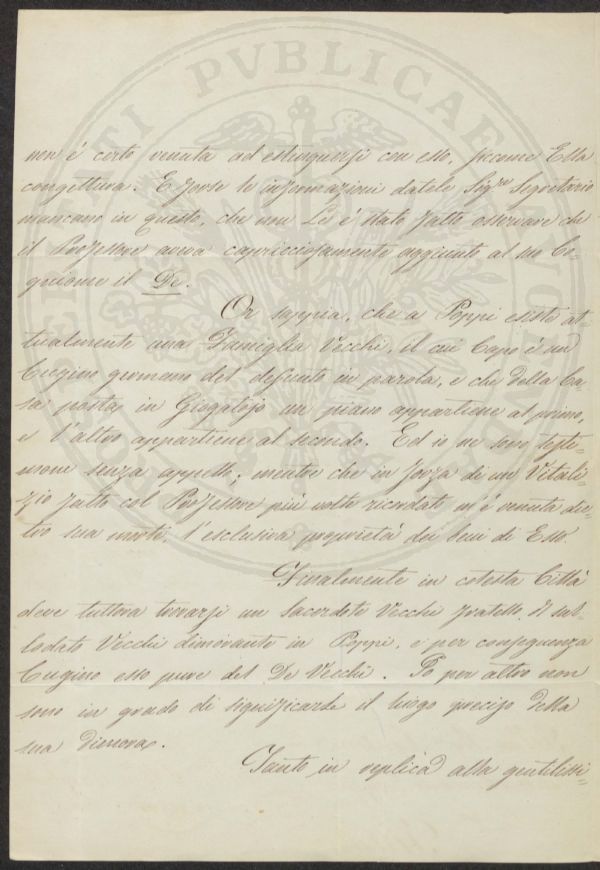 non è certo venuta ad estinguersi con esso, siccome Ella
congettura. E forse le informazioni datele Sigre Segretario
mancano in questo, che non Le è stato fatto osservare che
il Professore aveva capricciosamente aggiunto al suo Co-
gnome il De.
Or sappia, che a Poppi esiste at-
tualmente una Famiglia Vecchi, il cui Capo è un
Cugino germano del defunto in parola, e che della Ca-
sa posta in Giogatojo un piano appartiene al primo,
e l'altro appartiene al secondo. Ed io ne sono testi-
mone senza appello; mentre che in forza di un Vitali-
zio fatto col Professore più volte ricordato m'è venuta die-
tro sua morte, l'esclusiva proprietà dei beni di Esso.
Finalmente in cotesta Città
deve tuttora trovarsi un Sacerdote Vecchi fratello di sul-
lodato Vecchi dimorante in Poppi, e per conseguenza
Cugino esso pure del De Vecchi. Io per altro non
sono in grado di significarLe il luogo preciso della
sua dimora.
Tanto in replica alla gentilissi-
PVBLICAE